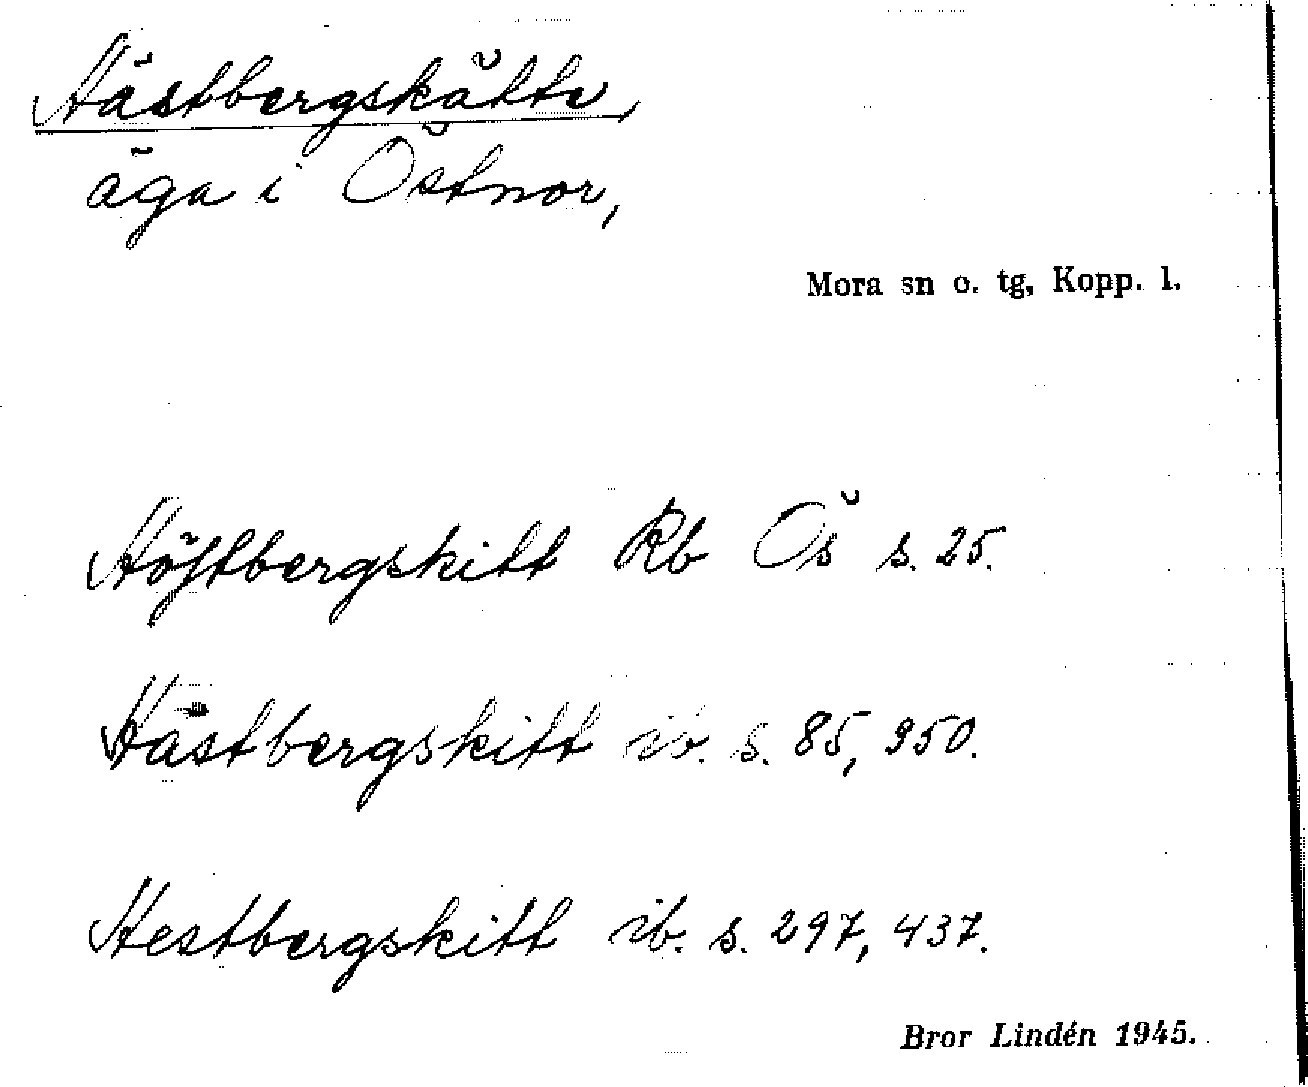 Hästbergskätte,
äga i Östnor,
Mora sn o. tg, Kopp. l.
Höstbergskitt Rb Ös s. 25.
Hästbergskitt ib. s. 85, 950.
Hestbergskitt ib. s. 297, 437.
Bror Lindén 1945.